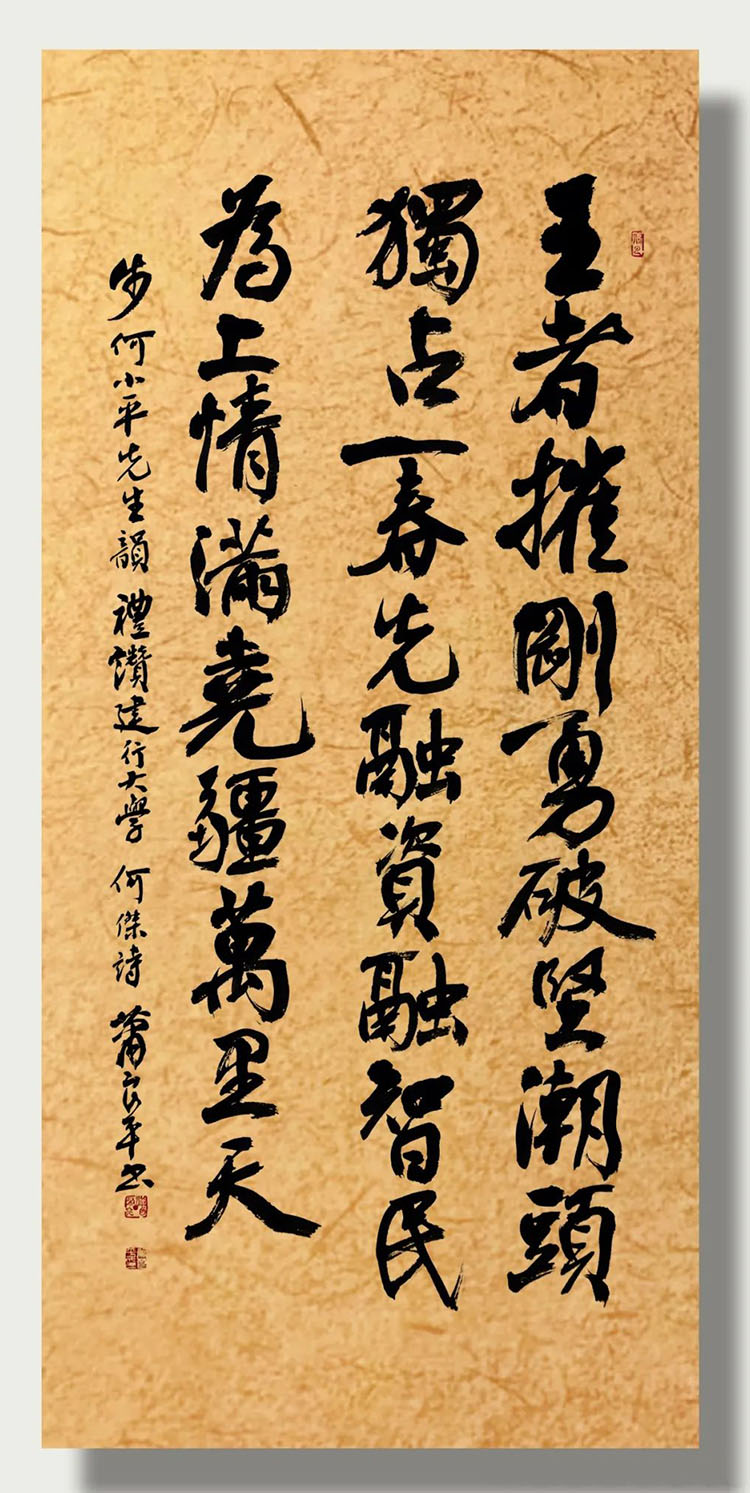 王者摧剛勇破堅潮頭
獨占一春先融資融智民
為上情滿堯疆萬里天
步何小平先生韻 禮讚建行大學 何傑詩 蕭良平书